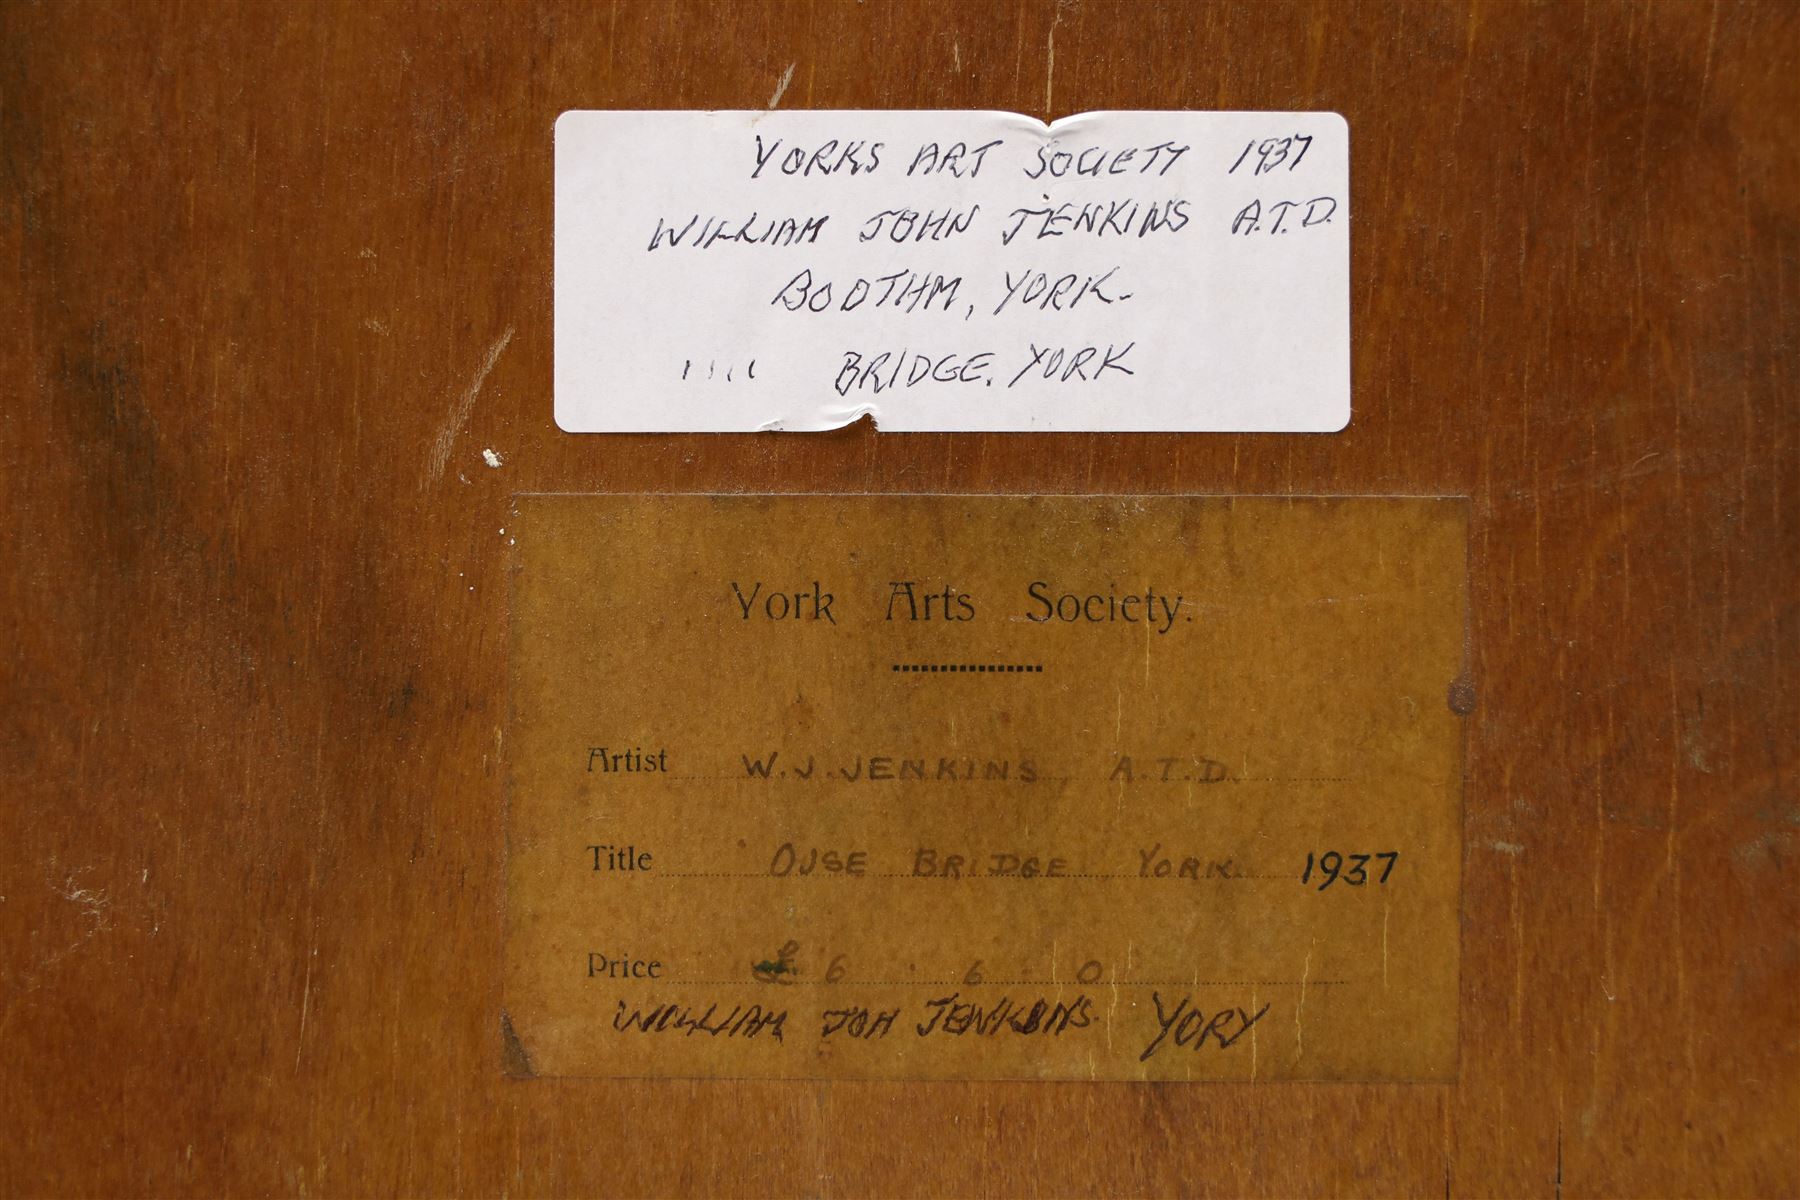 YORKS ART SOCIETY 1937
WILLIAM JOHN JENKINS A.T.D.
BOOTHM, YORK.
ıııı BRIDGE. YORK
York Arts Society.
Artist W.J. JENKINS, A.T.D.
Title OUSE BRIDGE YORK. 1937
Price £ 6 . 6 . 0
WILLIAM JOH JENKINS. YORY